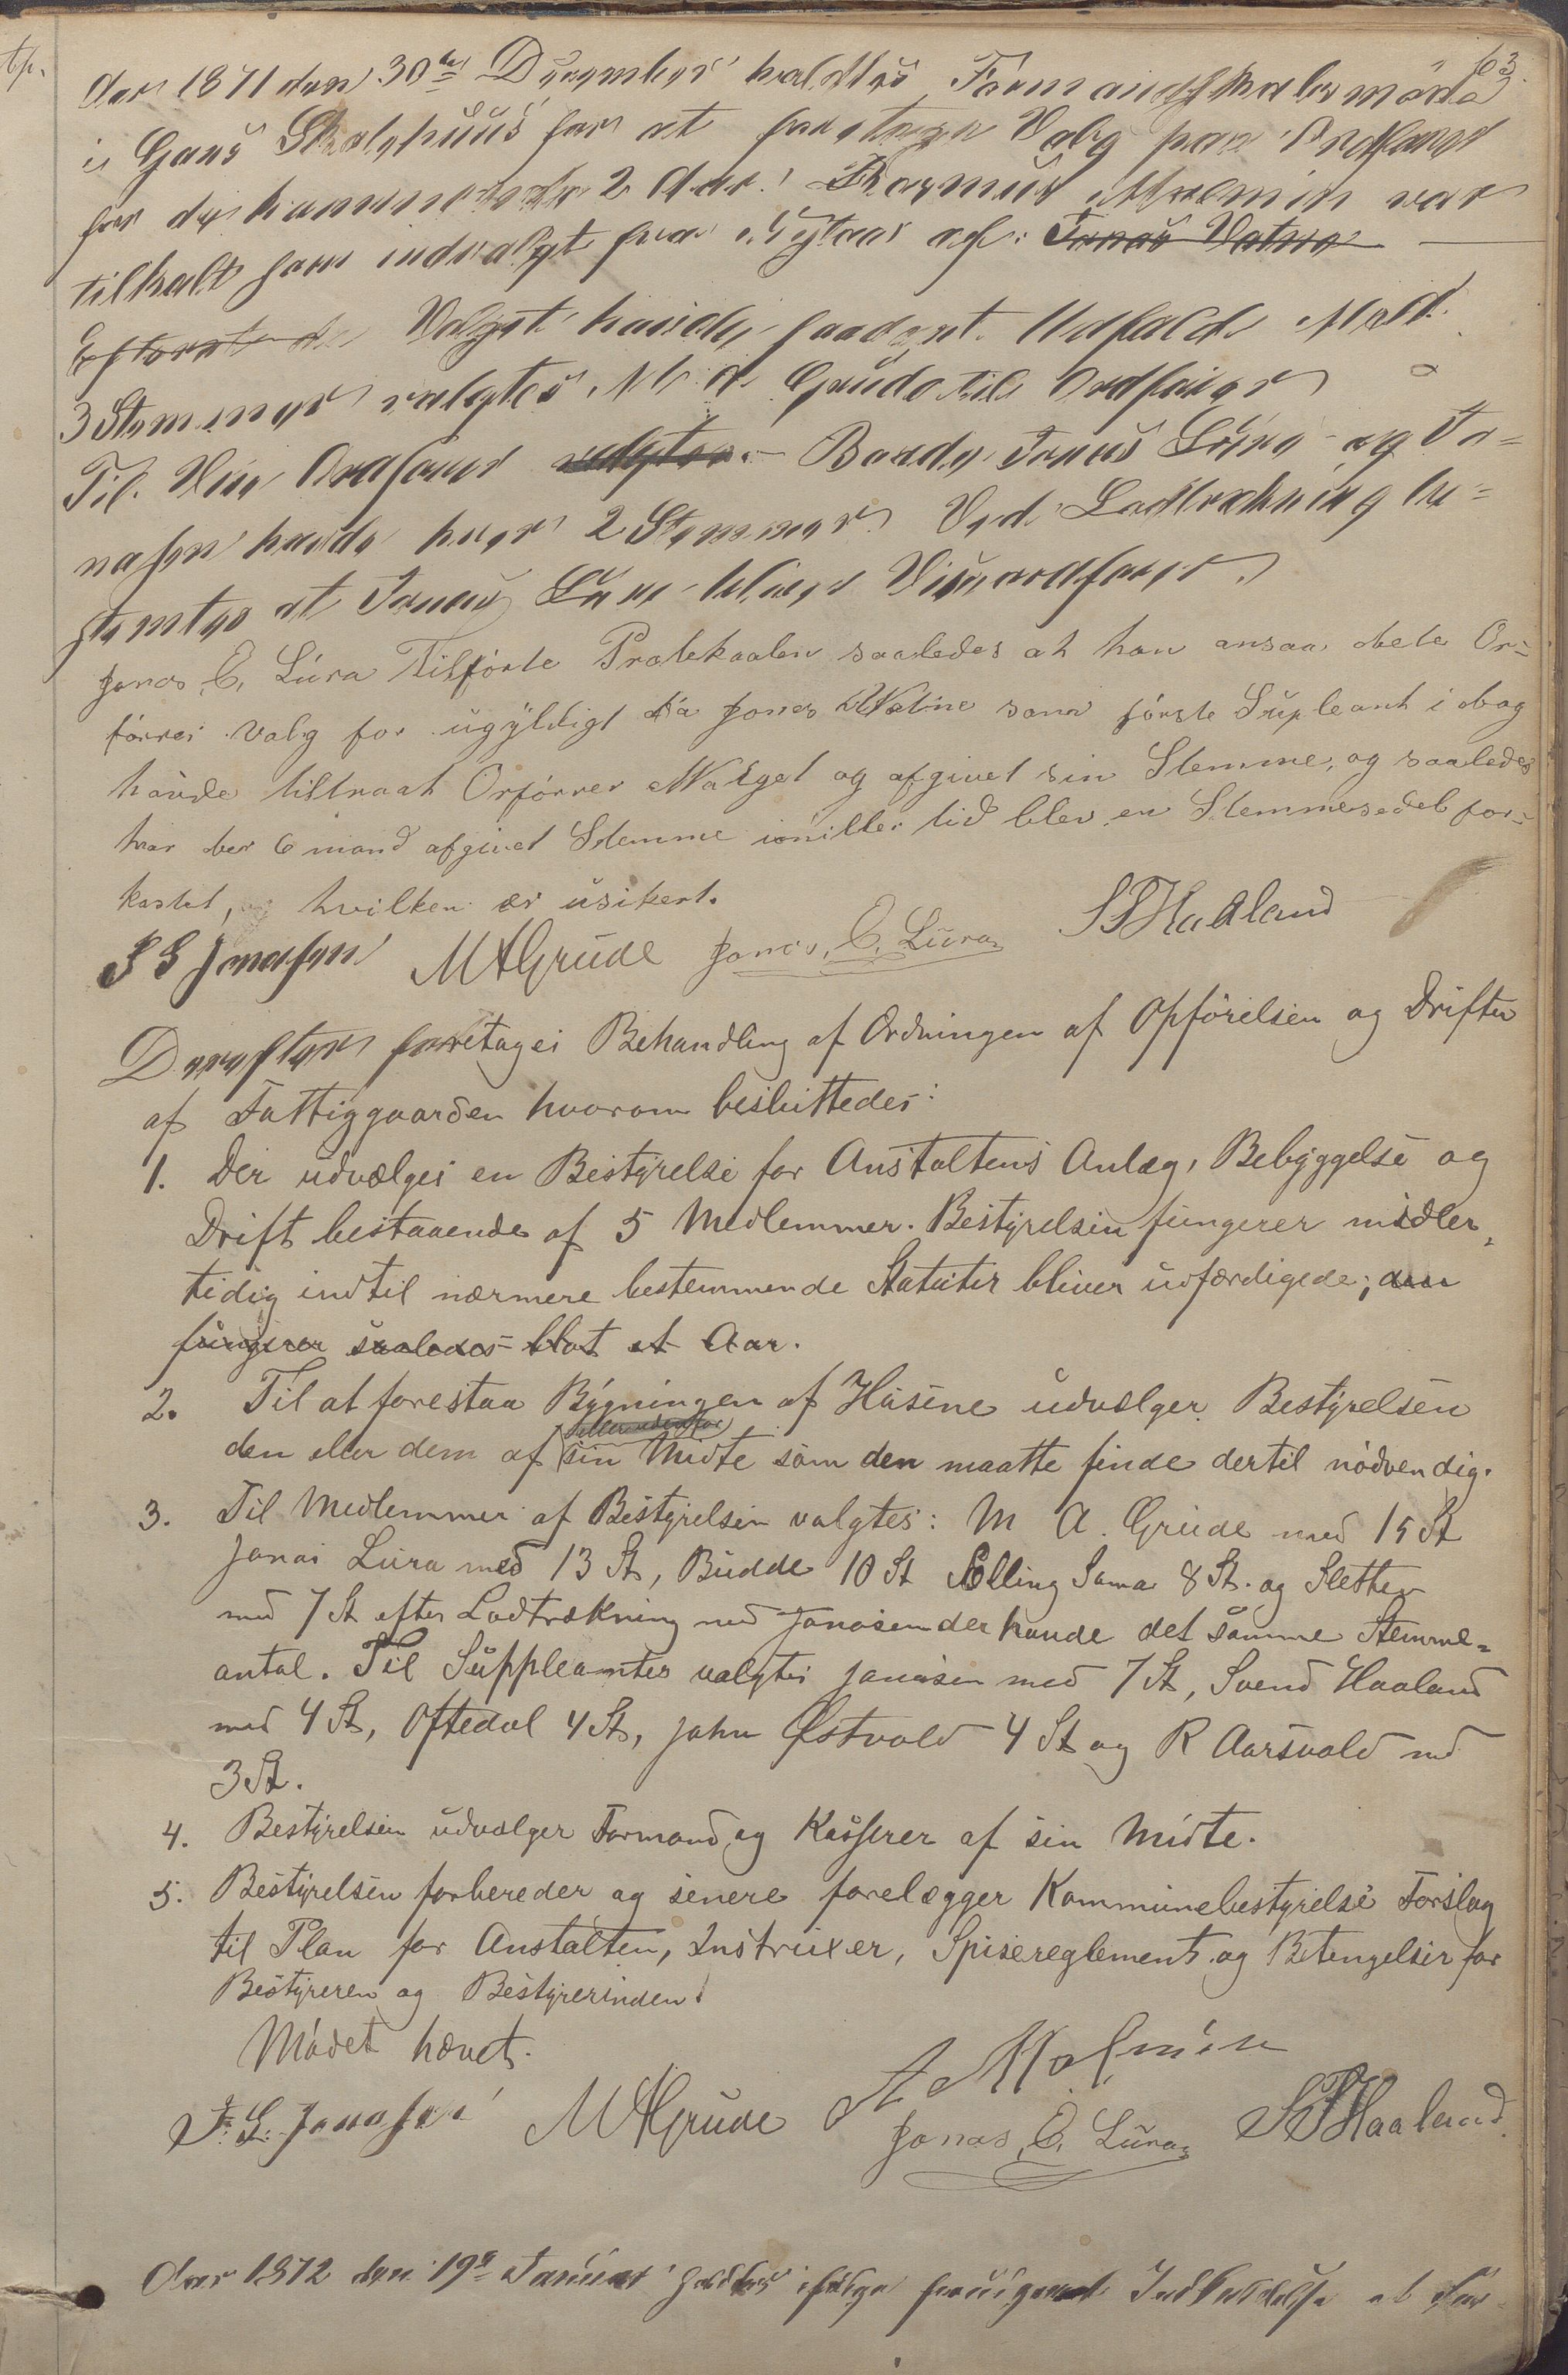 63.
Aar 1871 den 30te December holdtes Formandskabsmøde
i Gans Skolehuus for at foretage Valg paa Ordfører
for de kommende 2 Aar. Rasmus Malmin var
tilkaldt som indvalgt fra Nytaar af. Jonas Vatne
Efter at de Valget havde saadant Udfald Med
3 Stemmer valgtes M A Grude til Ordfører
Til Vice Ordfører valgtes. Baade Jonas Lura og Jo=
nasen havde hver 2 Stemmer. Ved Lodtrækning be=
stemtes at Jonas Lura bliver Viceordfører.
Jonas E. Lura Tilførte Protokaalen saaledes at han ansaa dete Or=
førrer valg for ugyldigt da Jonas Watne som første Supleant i dag
havde tiltraat Orførrer Walget og afgivet sin Stemme, og saaledes
har der 6 mand afgivet Stemme imiller tid blev en Stemmesedel for=
kastet, hvilken er usikert.
S S Jonasen MAGrude Jonas, E. Lura S S Haaland
Derefter foretoges Behandling af Ordningen af Opførelsen og Driften
af Fattiggaarden hvorom besluttedes:
1. Der udvælges en Bestyrelse for Anstaltens Anlæg, Bebyggelse og
Drift bestaaende af 5 Medlemmer. Bestyrelsen fungerer midler,
tidig indtil nærmere bestemmende Statuter bliver udfærdigede; den
fungerer saaledes blot et Aar.
2. Til at forestaa Bygningen af Husene udvælger Bestyrelsen
eller udenfor
den eller dem af sin Midte som den maatte finde dertil nødvendig.
3. Til Medlemmer af Bestyrelsen valgtes: M A. Grude med 15 St
Jonas Lura med 13 St, Budde 10 St Ælling Soma 8 St. og Sletten
med 7 St efter Lodtrækning med Jonasen der havde det samme Stemme=
antal. Til Suppleanter valgtes Jonasen med 7 St, Svend Haaland
med 4 St, Oftedal 4 St, John Østvold 4 St og R Aarsvold med
3 St.
4. Bestyrelsen udvælger Formand og Kasserer af sin Midte.
5. Bestyrelsen forbereder og senere forelægger Kommunebestyrelse Forslag
til Plan for Anstalten, Instruxer, Spisereglement og Betingelser for
Bestyreren og Bestyrerinden.
Mødet hævet.
A Malmin
S. S. Jonasen MAGrude Jonas, E. Lura S S Haaland
Aar 1872 den 19de Januar holdtes ifølge foregaaende Indkaldelse et For